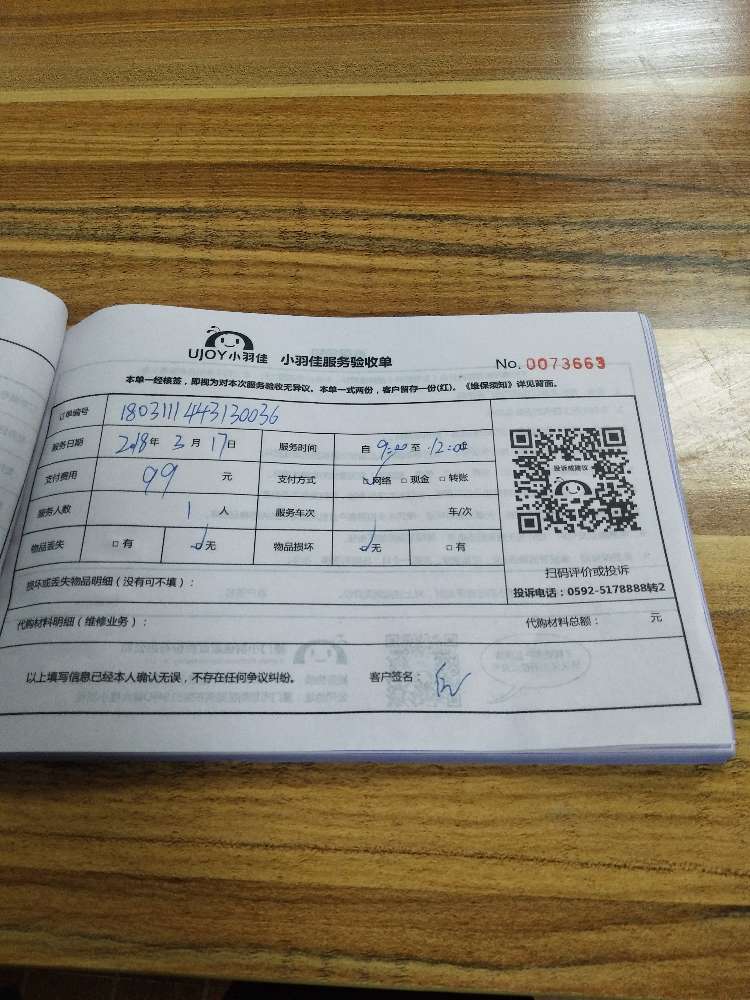 UJOY小羽佳 小羽佳服务验收单 No. 0073663
本单一经核签，即视为对本次服务验收无异议。本单一式两份，客户留存一份(红)。《维保须知》详见背面。
订单编号 1803111443130036
服务日期 2018年 3月 17日 服务时间 自 9:00 至 12:00
支付费用 99 元 支付方式 网络 □ 现金 □ 转账
服务人数 1 人 服务车次 车/次
物品丢失 □ 有 □无 物品损坏 □无 □ 有
投诉或建议
扫码评价或投诉
损坏或丢失物品明细（没有可不填）：
投诉电话：0592-5178888转2
代购材料明细（维修业务）： 代购材料总额： 元
以上填写信息已经本人确认无误，不存在任何争议纠纷。 客户签名：